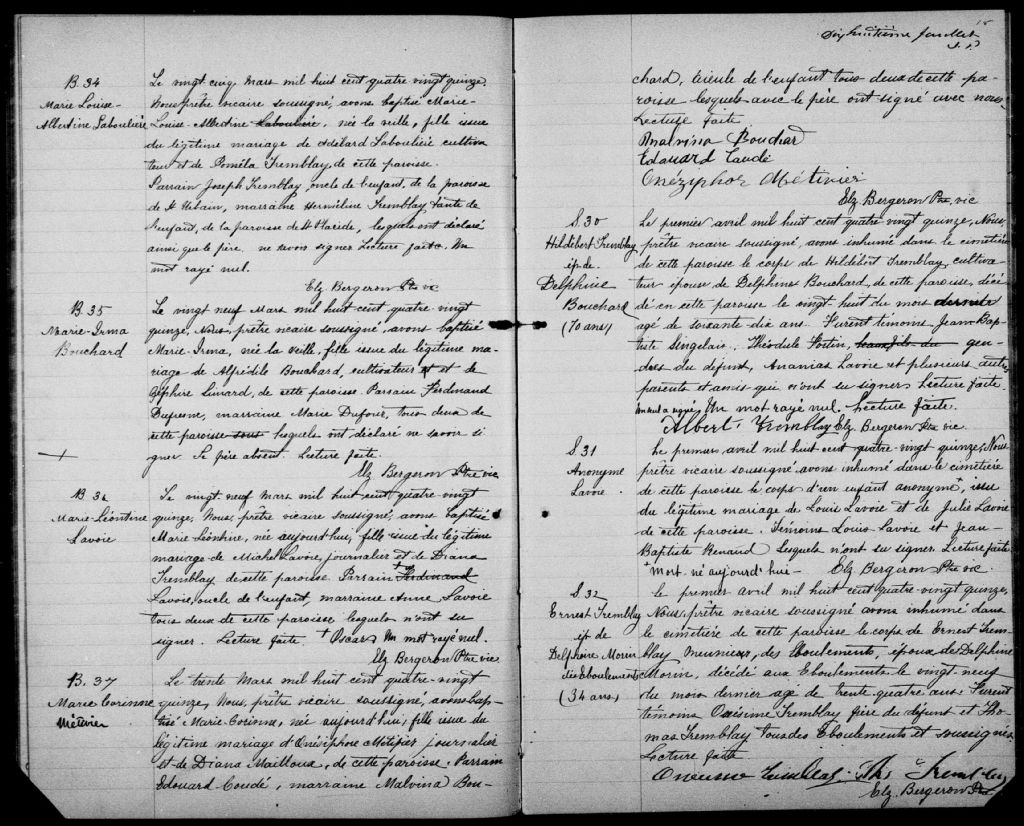 B. 34
Marie Louise-
Albertine Laboulière
Le vingt cinq Mars mil huit cent quatre vingt quinze,
Nous prêtre vicaire soussigné, avons baptisé Marie-
Louise-Albertine Laboulière, née la veille, fille issue
du légitime mariage de Adélard Laboulière cultiva
teur et de Poméla Tremblay, de cette paroisse.
Parrain Joseph Tremblay, oncle de l'enfant, de la paroisse
de St Urbain, marraine Herméline Tremblay, tante de
l'enfant, de la paroisse de St Placide, lesquels ont déclaré
ainsi que le père, ne savoir signer Lecture faite. Un
mot rayé nul.
Elz Bergeron Ptre vic
B. 35
Marie-Irma
Bouchard
Le vingt neuf Mars mil huit cent quatre vingt
quinze, Nous, prêtre vicaire soussigné, avons baptisé
Marie-Irma, née la veille, fille issue du légitime ma-
riage de Alfrédile Bouchard, cultivateur et et de
Simard, de cette paroisse. Parrain Ferdinand
Dufresne, marraine Marie Dufour, tous deux de
cette paroisse sous lesquels ont déclaré ne savoir si
gner Le père absent. Lecture faite.
Elz Bergeron Ptre vic
B. 36
Marie-Léontine
Lavoie
Le vingt neuf Mars mil huit cent quatre vingt
quinze, Nous, prêtre vicaire soussigné, avons baptisé
Marie Léontine, née aujourd'hui, fille issue du légitime
mariage de Michel Lavoie, journalier et de Diana
Tremblay, de cette paroisse. Parrain + Ferdinand
Lavoie, oncle de l'enfant, marraine Anne Lavoie
tous deux de cette paroisse lesquels n'ont su
signer. Lecture faite + Oscar. Un mot rayé nul.
Elz Bergeron Ptre vic
B. 37
Marie Corinne
Métivier
Le trente Mars mil huit cent quatre-vingt
quinze, Nous, prêtre vicaire soussigné, avons bap-
tisé Marie-Corinne, née aujourd'hui, fille issue du
légitime mariage d'Onésiphore Métivier journalier
et de Diana Mailloux, de cette paroisse. Parrain
Edouard Coudé, marraine Malvina Bou-
Dixhuitième feuillet
chard, tous deux de cette pa-
roisse lesquels avec le père ont signé avec nous
Lecture faite
Malvina Bouchard
Edouard Caudé
Onéziphor Métivier
Elz Bergeron Ptre vic
S. 30
Hildébert Tremblay
ép. de
Delphine
Bouchard
(70 ans)
Le premier avril mil huit cent quatre vingt quinze, Nous,
prêtre vicaire soussigné, avons inhumé dans le cimetière
de cette paroisse le corps de Hildébert Tremblay, cultiva-
teur époux de Delphine Bouchard, de cette paroisse, décé
dé en cette paroisse le vingt-huit du mois dernier
agé de soixante-dix ans. Furent témoins Jean-Bap-
tiste Singelais. Théodule Fortin, gen-
dres du défunt, Ananias Lavoie et plusieurs autres
parents et amis qui n'ont su signer Lecture faite.
Un mot rayé nul. Lecture faite.
Albert Tremblay Elz Bergeron Ptre vic.
S. 31
Anonyme
Lavoie
Le premier avril mil huit cent quatre-vingt quinze, Nous
prêtre vicaire soussigné avons inhumé dans le cimetière
de cette paroisse le corps d'un enfant anonyme +, issu
du légitime mariage de Louis Lavoie et de Julie Lavoie
de cette paroisse. Témoins Louis Lavoie et Jean-
Baptiste Renaud Lesquels n'ont su signer. Lecture faite
+ Mort-né aujourd'hui - Elz Bergeron Ptre vic
S. 32
Ernest Tremblay
ép de
Delphine Morin
des Eboulements
(34 ans)
Le premier avril mil huit cent quatre-vingt quinze,
Nous, prêtre vicaire soussigné avons inhumé dans
le cimetière de cette paroisse le corps de Ernest Trem-
blay Meunier, des Eboulements, époux de Delphine
Morin, décédé aux Eboulements le vingt-neuf
du mois dernier agé de trente-quatre ans. Furent
témoins Onésime Tremblay frère du défunt et Tho-
mas Tremblay tous des Eboulements et soussignés
Lecture faite
Onesime Tremblay. Ths Tremblay
Elz. Bergeron Ptre